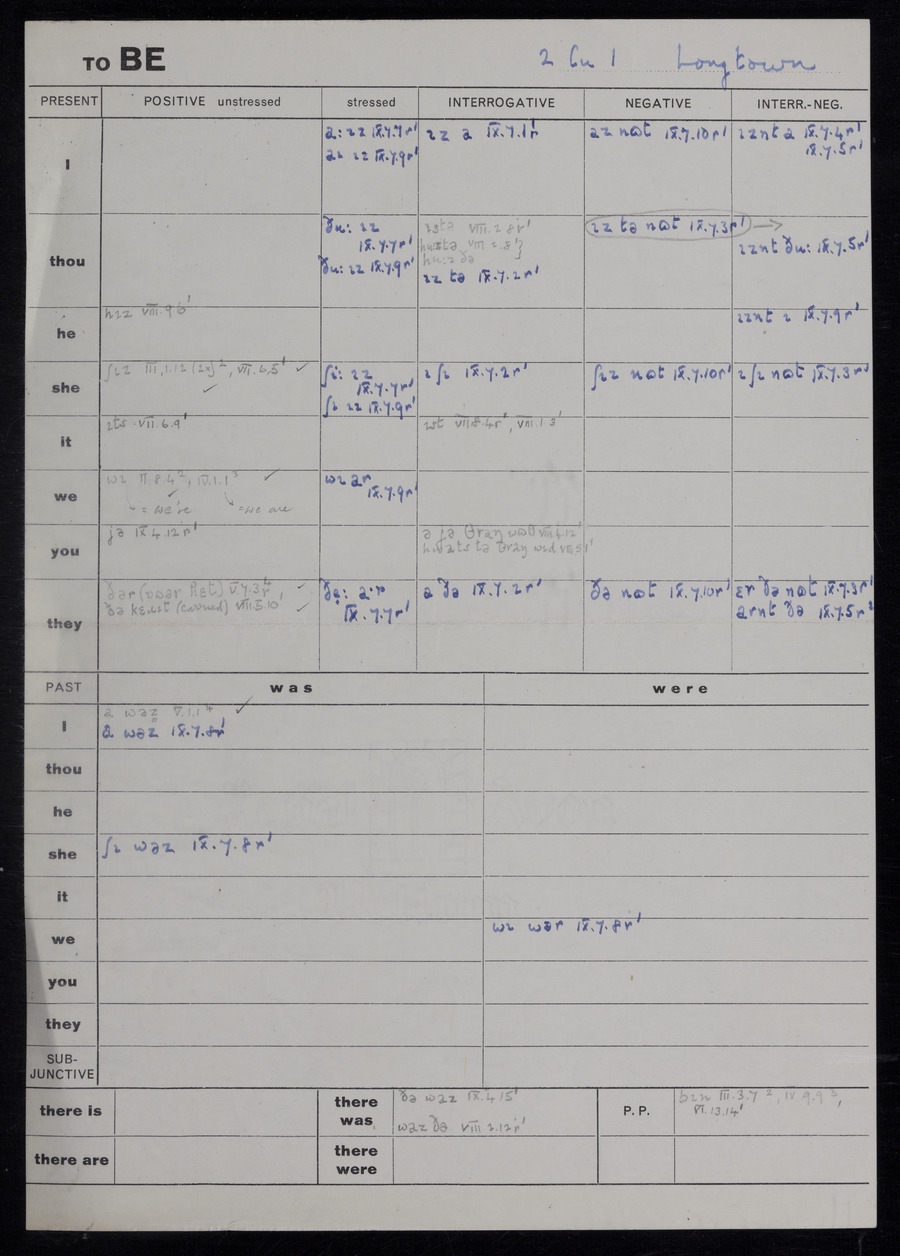 TO BE 2 Cu 1 Longtown
PRESENT POSITIVE unstressed stressed INTERROGATIVE NEGATIVE INTERR.-NEG.
I
ɑ: ɪz IX.7.7r¹ ɪz ə IX.7.1r¹ az nɒt IX.7.10r¹ ɪznt ə IX.7.4r¹
IX.7.9r¹ IX.7.5r¹
thou
ðu: ɪz
IX.7.7r¹
ðu: ɪz IX.7.9r¹
ɪstə VIII.2.8r¹
ɪz tə IX.7.2r¹
ɪz tə nɒt IX.7.3r¹ →
ɪznt ðu: IX.7.5r¹
he
hɪz VIII.9.6¹
ɪznt ɪ IX.7.9r¹
she
ʃɪz III.1.12 (2x)², VII.6.5¹ ✓
✓
ʃi: ɪz
IX.7.7r¹
ʃɪ ɪz IX.7.9r¹
ɪ ʃɪ IX.7.2r¹
ʃɪz nɒt IX.7.10r¹
ɪ ʃɪ nɒt IX.7.3r¹
it
ɪts VII.6.9¹
we
wɪ II.8.4², IV.1.1³ ✓
✓
= we're =we are
wɪ ar
IX.7.9r¹
you
jə IX.4.12r¹
they
ðe: a·r
IX.7.7r¹
a ðə IX.7.2r¹
ðə nɒt IX.7.10r¹
ɛr ðə nɒt IX.7.3r¹
arnt ðə IX.7.5r²
PAST was were
I
a wəz V.1.1⁴ ✓
a wəz IX.7.8r¹
thou
he
she
ʃɪ wəz IX.7.8r¹
it
we
wɪ wər IX.7.8r¹
you
they
SUB-
JUNCTIVE
there is
there
was
ðə wəz IX.4.15¹
wəz ðə VIII.2.12r¹
P.P.
bɪn III.3.7², IV 9.9³,
VI.13.14¹
there are
there
were